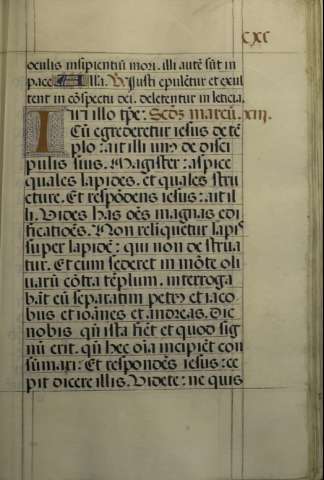 cxc
oculis insipientiũ mori. illi autẽ sũt in
pace. Alla. V. Justi epulẽtur et exul
tent in cõspectu dei. delectentur in leticia.
In illo tp̃e: Scd̃s marcũ. xiii.
Cũ egrederetur iesus de tẽ
plo: ait illi un᷒ de disci
pulis suis. Magister: aspice
quales lapides. et quales stru
cture. Et respõdens iesus: ait il
li. Vides has oẽs magnas edi
ficatiões. Non relinquetur lapis
super lapidẽ: qui non destrua
tur. Et cum sederet in mõte oli
uarũ cõtra tẽplum. interroga
bãt eũ separatim petr᷒ et iaco
bus et ioãnes et andreas. Dic
nobis qñ ista fiẽt et quod sig
nũ erit. qñ hec oĩa incipiẽt con
sũmari: Et respondẽs iesus: ce
pit dicere illis. Videte: ne quis